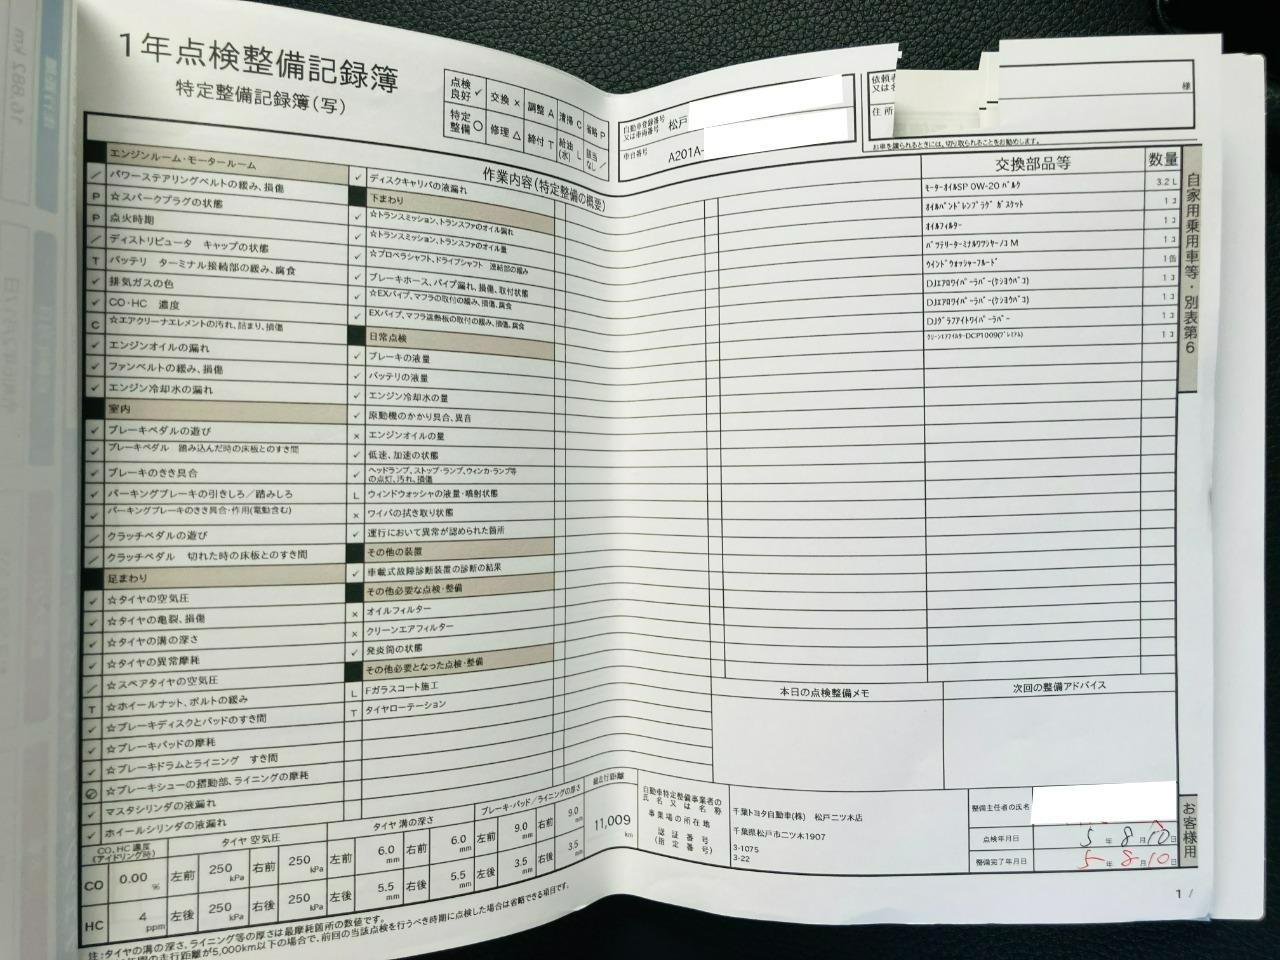 1年点検整備記録簿
特定整備記録簿(写)
点検良好 ✓ 交換 × 調整 A 清掃 C 省略 P
特定整備 ○ 修理 △ 締付 T 給油(水) L 該当なし ／
自動車登録番号又は車両番号 松戸
車台番号 A201A-
依頼
又は
様
住所
お車を譲られるときには、切り取られることをお勧めします。
作業内容(特定整備の概要)
エンジンルーム・モータールーム
／ パワーステアリングベルトの緩み、損傷
P ☆スパークプラグの状態
P 点火時期
／ ディストリビュータ キャップの状態
T バッテリ ターミナル接続部の緩み、腐食
✓ 排気ガスの色
✓ CO・HC 濃度
C ☆エアクリーナエレメントの汚れ、詰まり、損傷
✓ エンジンオイルの漏れ
✓ ファンベルトの緩み、損傷
✓ エンジン冷却水の漏れ
室内
✓ ブレーキペダルの遊び
✓ ブレーキペダル 踏み込んだ時の床板とのすき間
✓ ブレーキのきき具合
✓ パーキングブレーキの引きしろ／踏みしろ
✓ パーキングブレーキのきき具合・作用(電動含む)
／ クラッチペダルの遊び
／ クラッチペダル 切れた時の床板とのすき間
足まわり
✓ ☆タイヤの空気圧
✓ ☆タイヤの亀裂、損傷
✓ ☆タイヤの溝の深さ
✓ ☆タイヤの異常摩耗
／ ☆スペアタイヤの空気圧
T ☆ホイールナット、ボルトの緩み
✓ ☆ブレーキディスクとパッドのすき間
✓ ☆ブレーキパッドの摩耗
✓ ☆ブレーキドラムとライニング すき間
☆ブレーキシューの摺動部、ライニングの摩耗
✓ マスタシリンダの液漏れ
✓ ホイールシリンダの液漏れ
✓ ディスクキャリパの液漏れ
下まわり
✓ ☆トランスミッション、トランスファのオイル漏れ
✓ ☆トランスミッション、トランスファのオイル量
✓ ☆プロペラシャフト、ドライブシャフト 連結部の緩み
✓ ブレーキホース、パイプ漏れ、損傷、取付状態
✓ ☆EXパイプ、マフラの取付の緩み、損傷、腐食
✓ EXパイプ、マフラ遮熱板の取付の緩み、損傷、腐食
日常点検
✓ ブレーキの液量
✓ バッテリの液量
✓ エンジン冷却水の量
✓ 原動機のかかり具合、異音
× エンジンオイルの量
✓ 低速、加速の状態
✓ ヘッドランプ、ストップ・ランプ、ウィンカ・ランプ等の点灯、汚れ、損傷
L ウィンドウォッシャの液量・噴射状態
× ワイパの拭き取り状態
✓ 運行において異常が認められた箇所
その他の装置
✓ 車載式故障診断装置の診断の結果
その他必要な点検・整備
× オイルフィルター
× クリーンエアフィルター
✓ 発炎筒の状態
その他必要となった点検・整備
L Fガラスコート施工
T タイヤローテーション
交換部品等 数量
ﾓｰﾀｰｵｲﾙSP 0W-20 ﾊﾞﾙｸ 3.2 L
ｵｲﾙﾊﾟﾝﾄﾞﾚﾝﾌﾟﾗｸﾞ ｶﾞｽｹｯﾄ 1 ｺ
ｵｲﾙﾌｨﾙﾀｰ 1 ｺ
ﾊﾞｯﾃﾘｰﾀｰﾐﾅﾙﾜﾝﾔｰﾉｺ M 1 ｺ
ｳｲﾝﾄﾞｳｫｯｼｬｰﾌﾙｰﾄﾞ 1 缶
DJｴｱﾛﾜｲﾊﾟｰﾗﾊﾞｰ(ｹｼｮｳﾊﾞｺ) 1 ｺ
DJｴｱﾛﾜｲﾊﾟｰﾗﾊﾞｰ(ｹｼｮｳﾊﾞｺ) 1 ｺ
DJｸﾞﾗﾌｧｲﾄﾜｲﾊﾟｰﾗﾊﾞｰ 1 ｺ
ｸﾘｰﾝｴｱﾌｨﾙﾀｰDCP1009(ﾌﾟﾚﾐｱﾑ) 1 ｺ
自家用乗用車等・別表第6
本日の点検整備メモ 次回の整備アドバイス
CO、HC濃度(アイドリング時)
CO 0.00 %
HC 4 ppm
タイヤ 空気圧
左前 250 kPa 右前 250 kPa
左後 250 kPa 右後 250 kPa
タイヤ 溝の深さ
左前 6.0 mm 右前 6.0 mm
左後 5.5 mm 右後 5.5 mm
ブレーキ・パッド／ライニングの厚さ
左前 9.0 mm 右前 9.0 mm
左後 3.5 mm 右後 3.5 mm
総走行距離 11,009 km
自動車特定整備事業者の氏名又は名称 千葉トヨタ自動車(株) 松戸二ツ木店
事業場の所在地 千葉県松戸市二ツ木1907
認証番号 3-1075
(指定番号) 3-22
整備主任者の氏名
点検年月日 5 年 8 月 10 日
整備完了年月日 5 年 8 月 10 日
お客様用
1 /
注:タイヤの溝の深さ、ライニング等の厚さは最摩耗箇所の数値です。
年間の走行距離が5,000km以下の場合で、前回の当該点検を行うべき時期に点検した場合は省略できる項目です。
16,882 km